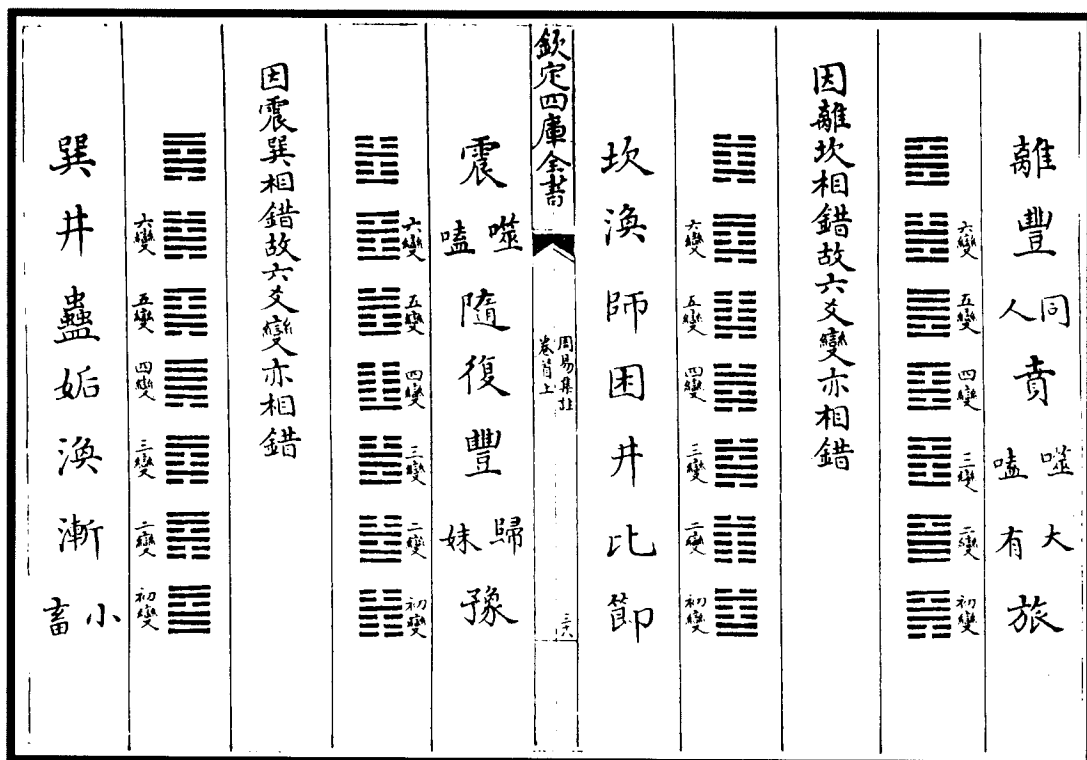 離 豐 同人 賁 噬嗑 大有 旅
六變 五變 四變 三變 二變 初變
因離坎相錯故六爻變亦相錯
六變 五變 四變 三變 二變 初變
坎 渙 師 困 井 比 節
欽定四庫全書
周易集註
卷首上
三六
震 噬嗑 隨 復 豐 歸妹 豫
六變 五變 四變 三變 二變 初變
因震巽相錯故六爻變亦相錯
六變 五變 四變 三變 二變 初變
巽 井 蠱 姤 渙 漸 小畜